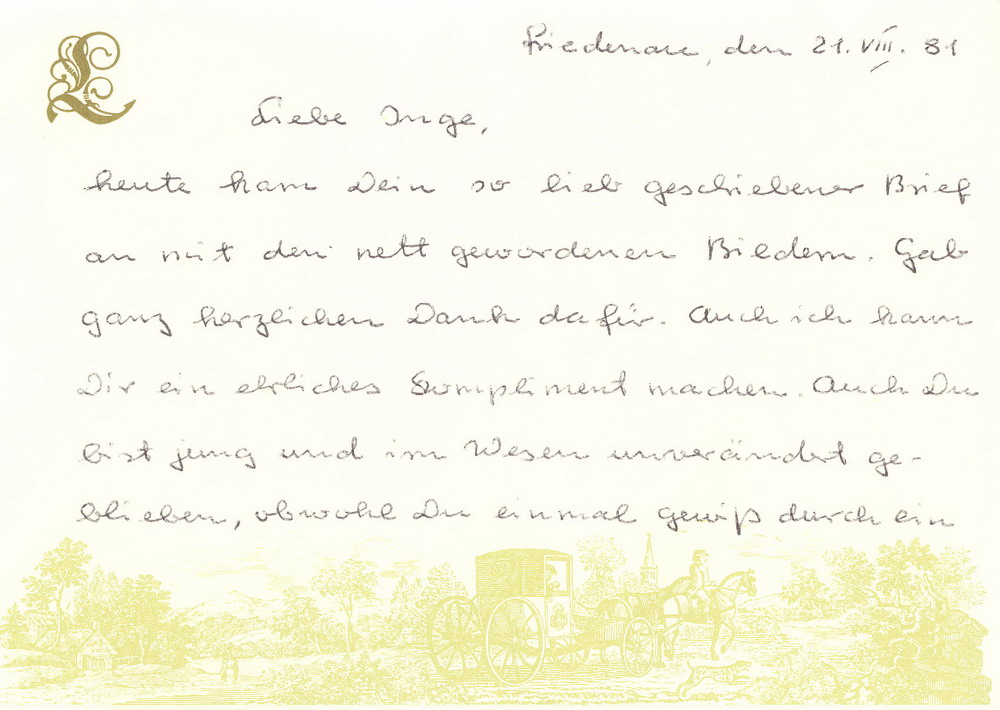 L
Friedenau, den 21. VIII. 81
Liebe Inge,
heute kam Dein so lieb geschiebener Brief
an mit den nett gewordenen Bildern. Hab
ganz herzlichen Dank dafür. Auch ich kann
Dir ein ehrliches Kompliment machen. Auch Du
bist jung und im Wesen unverändert ge-
blieben, obwohl Du einmal gewiß durch ein